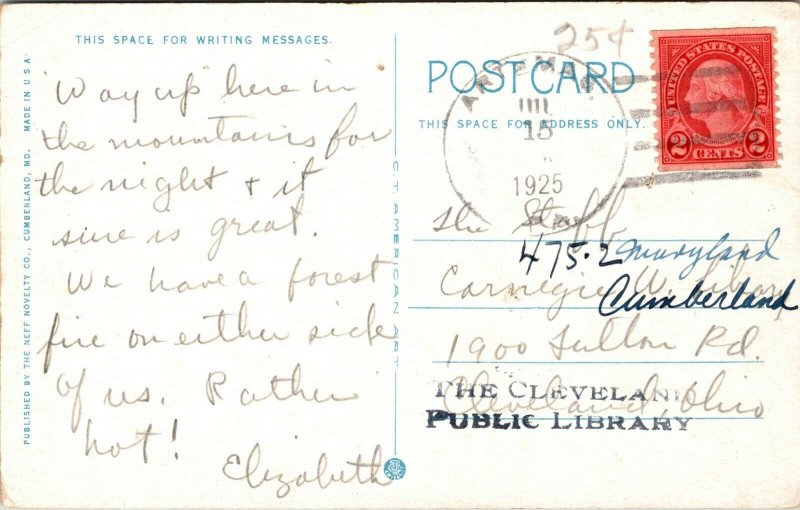 THIS SPACE FOR WRITING MESSAGES.
Way up here in
the mountains for
the night & it
sure is great.
We have a forest
fire on either side
of us. Rather
hot!
Elizabeth
PUBLISHED BY THE NEFF NOVELTY CO., CUMBERLAND, MD. MADE IN U.S.A.
C.T. AMERICAN ART
25¢
POST CARD
THIS SPACE FOR ADDRESS ONLY.
15
1925
UNITED STATES POSTAGE
2 CENTS 2
The Staff
475.2 Maryland
Carnegie W. Library
Cumberland
1900 Fulton Rd.
Cleveland, Ohio
THE CLEVELAND
PUBLIC LIBRARY